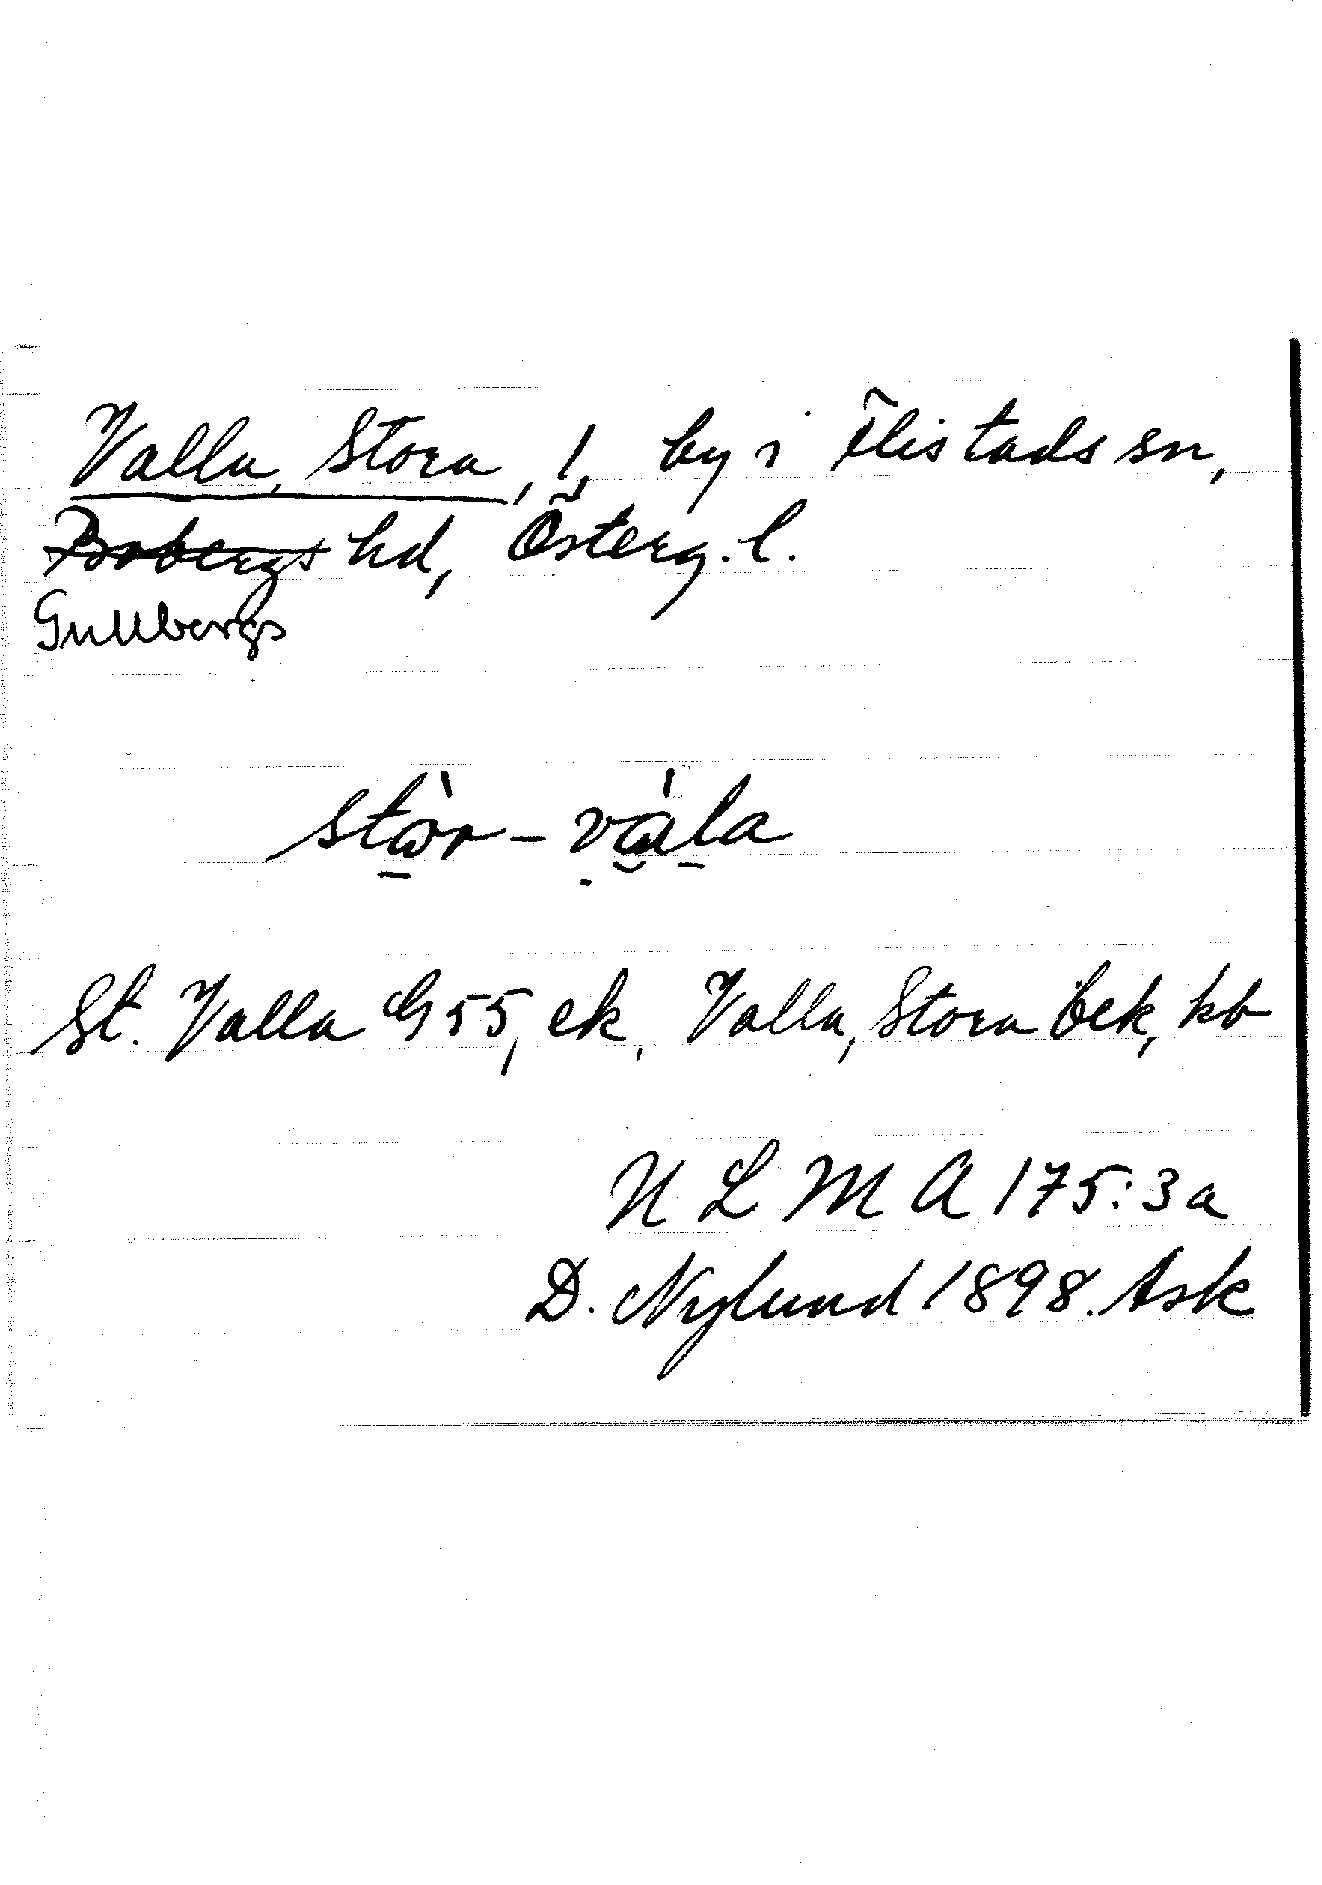 Valla, Stora, 1, by i Flistads sn,
Bobergs hd, Österg. l.
Gullbergs
stòr-vála
St. Valla G 55, ek, Valla, Stora bek, kb
N L M A 175:3a
D. Nylund 1898. Ask